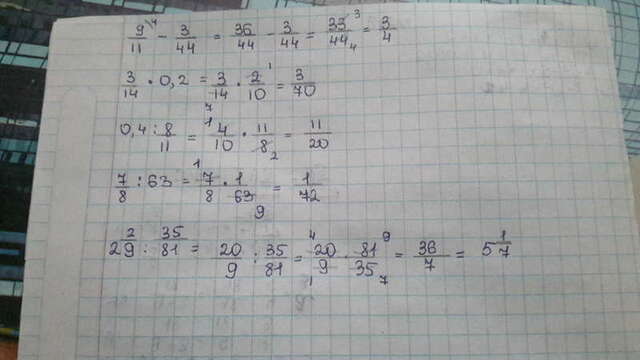 9/11 ⁴ - 3/44 = 36/44 - 3/44 = 33/44 ³ ₄ = 3/4
3/14 · 0,2 = 3/14 ₇ · 2/10 ¹ = 3/70
0,4 : 8/11 = ¹ 4/10 · 11/8 ₂ = 11/20
7/8 : 63 = ¹ 7/8 · 1/63 ₉ = 1/72
2 2/9 : 35/81 = 20/9 : 35/81 = ⁴ 20/9 ₁ · 81/35 ⁹ ₇ = 36/7 = 5 1/7